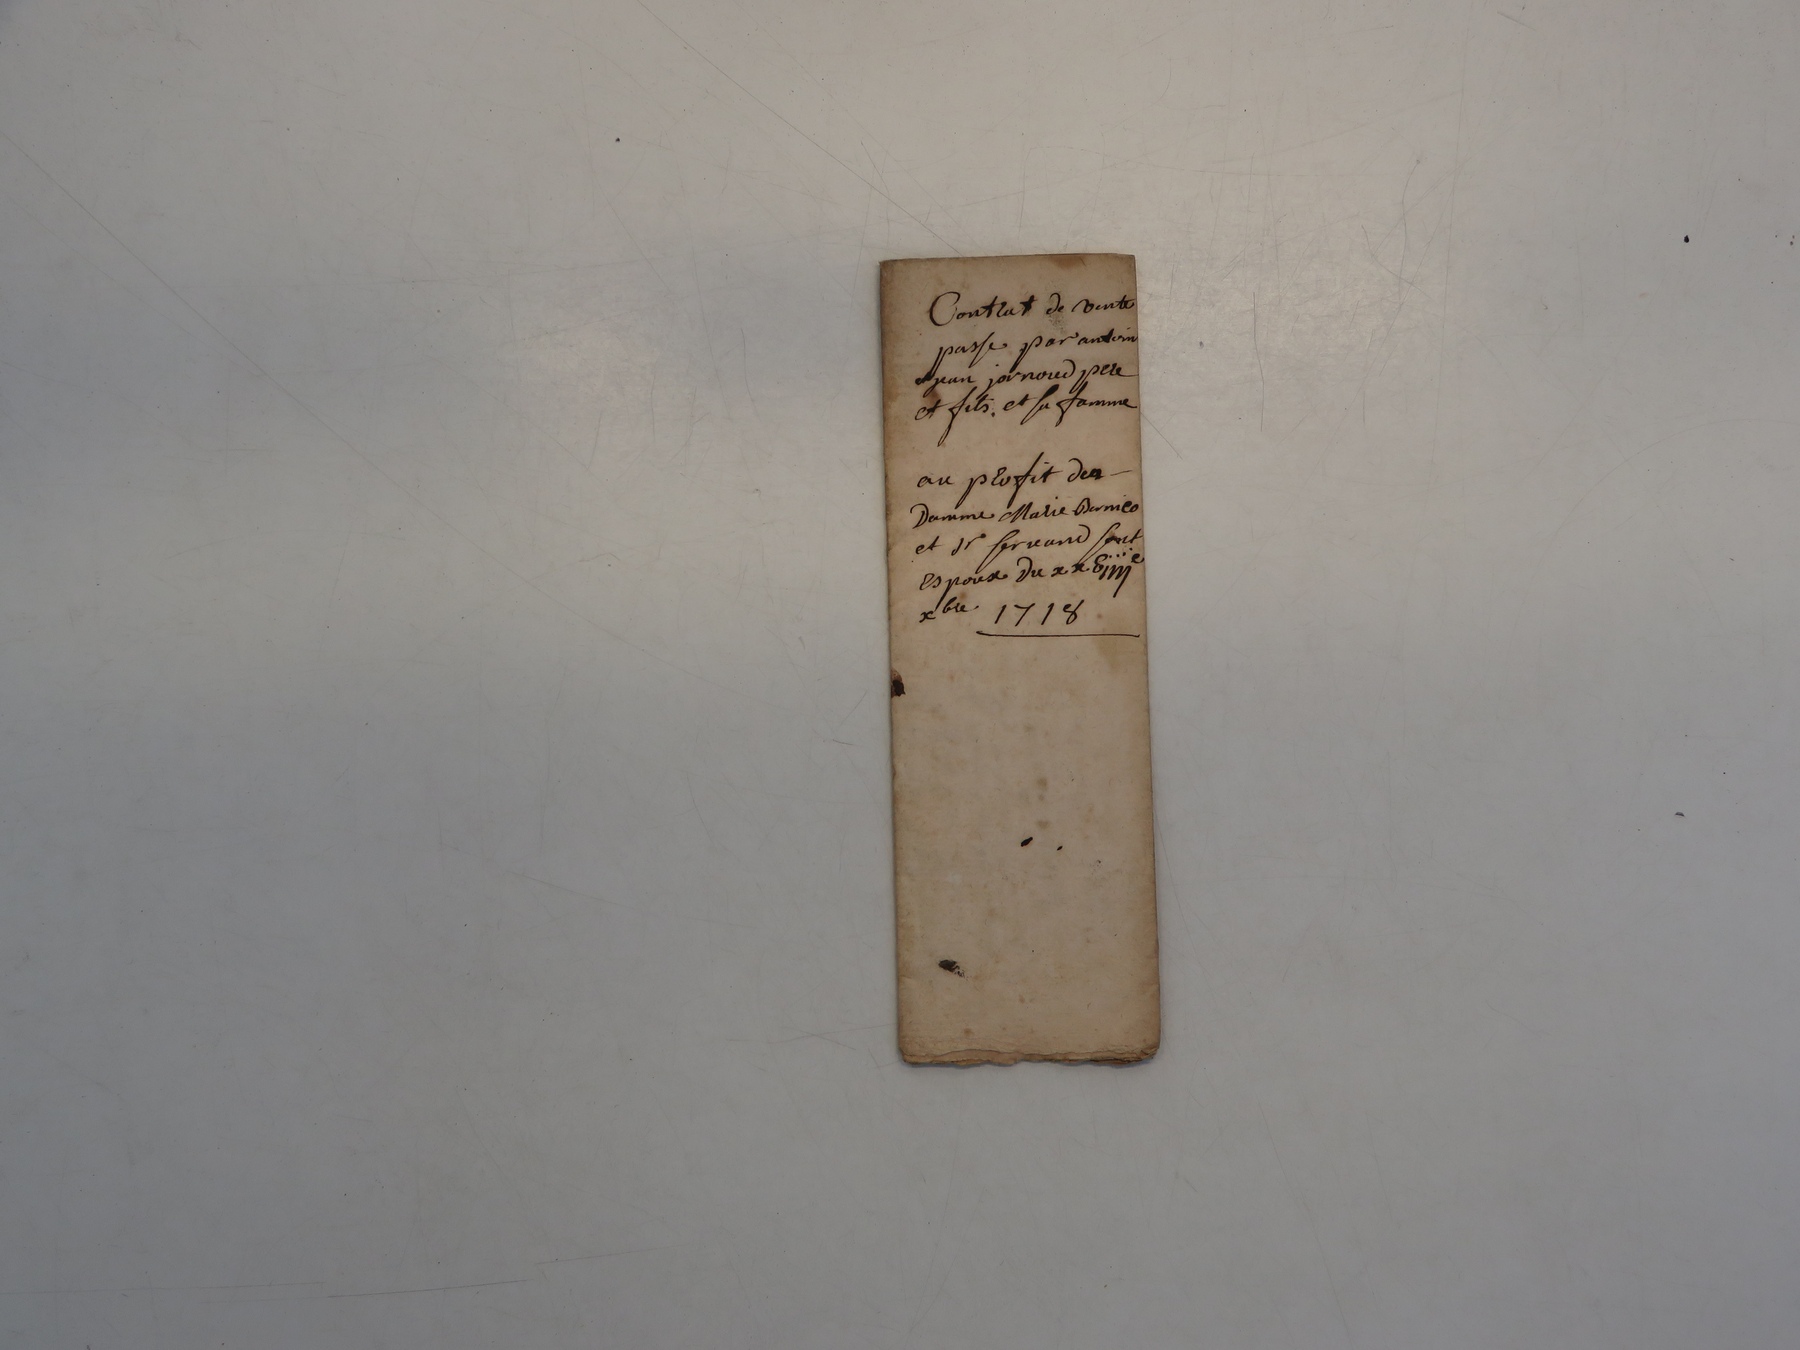 Contrat de vente
passe par antoin
et jean jarnoud pere
et fils, et sa famme
au profit des
Damme Marie
et Sr servand sont
espoux du xxviiiie
xbre 1718